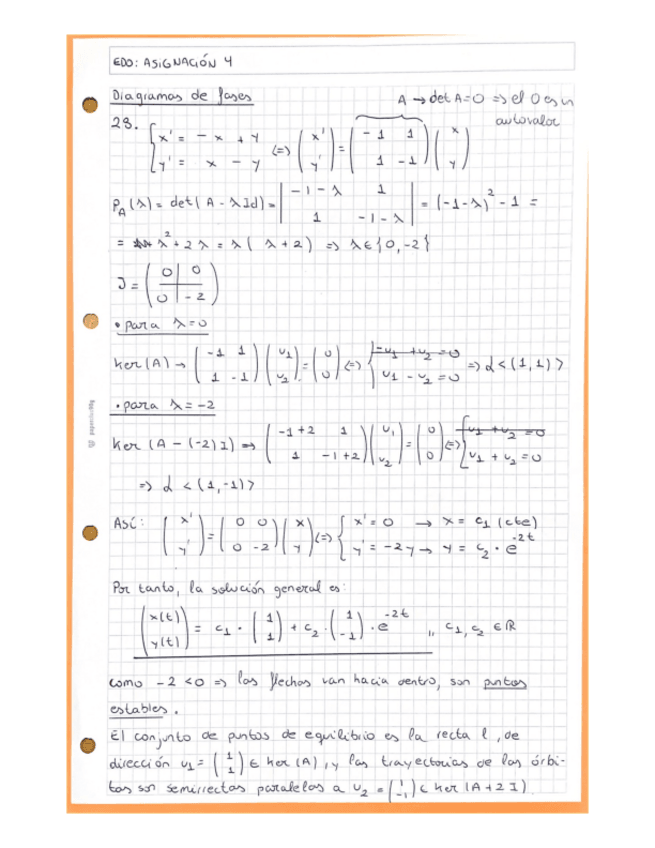 EDO: ASIGNACIÓN 4
Diagramas de fases
A → det A=0 => el 0 es un autovalor
28. { x' = - x + y
y' = x - y
<=> (x' y') = (-1 1 / 1 -1) (x y)
P_A(λ) = det(A - λId) = | -1-λ 1 / 1 -1-λ | = (-1-λ)² - 1 =
= λ² + 2λ = λ(λ+2) => λ∈{0,-2}
J = (0 0 / 0 -2)
• para λ=0
ker(A) → (-1 1 / 1 -1) (v₁ v₂) = (0 0) <=> { -v₁ + v₂ = 0 / v₁ - v₂ = 0 => L<(1,1)>
• para λ=-2
ker(A-(-2)I) => (-1+2 1 / 1 -1+2) (v₁ v₂) = (0 0) <=> { v₁ + v₂ = 0 / v₁ + v₂ = 0
=> L<(1,-1)>
Así: (x' y') = (0 0 / 0 -2) (x y) <=> { x' = 0 → x = c₁ (cte)
y' = -2y → y = c₂ · e^-2t
Por tanto, la solución general es:
(x(t) y(t)) = c₁ · (1 1) + c₂ · (1 -1) · e^-2t ,, c₁, c₂ ∈ ℝ
como -2 <0 => las flechas van hacia dentro, son puntos
estables.
El conjunto de puntos de equilibrio es la recta l, de
dirección v₁ = (1 1) ∈ ker(A), y las trayectorias de las órbi-
tas son semirrectas paralelas a v₂ = (1 -1) ∈ ker(A+2I)